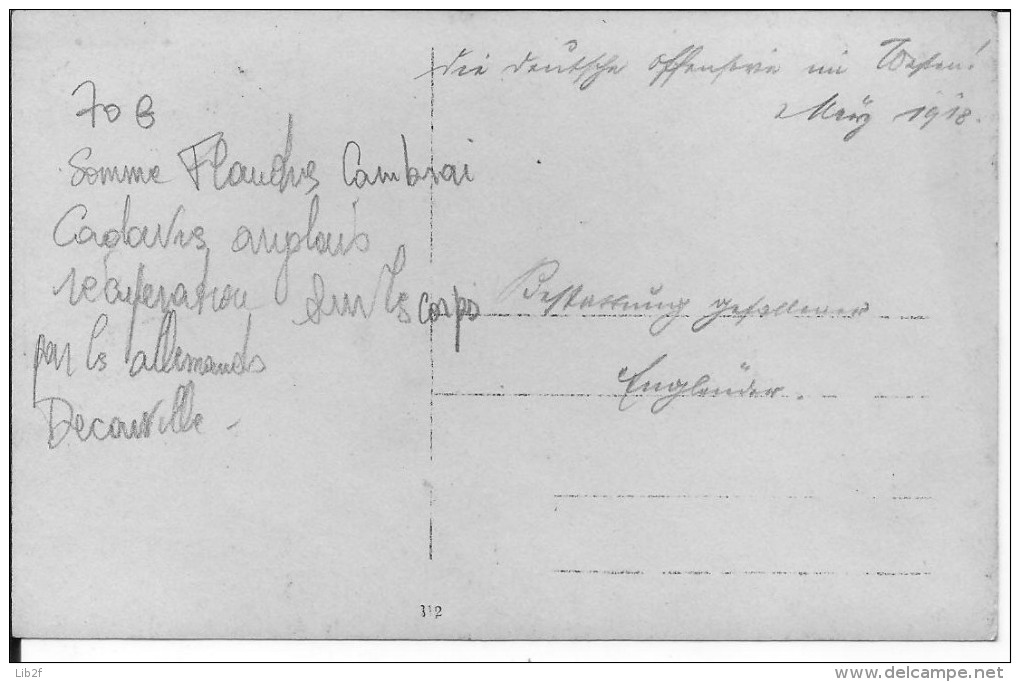 Die deutsche Offensive im Westen!
März 1918.
70 B
Somme Flandres Cambrai
Cadavres anglais
récupération sur les corps
par les allemands
Decauville -
Bestattung gefallener
Engländer.
312
Lib2f
www.delcampe.net